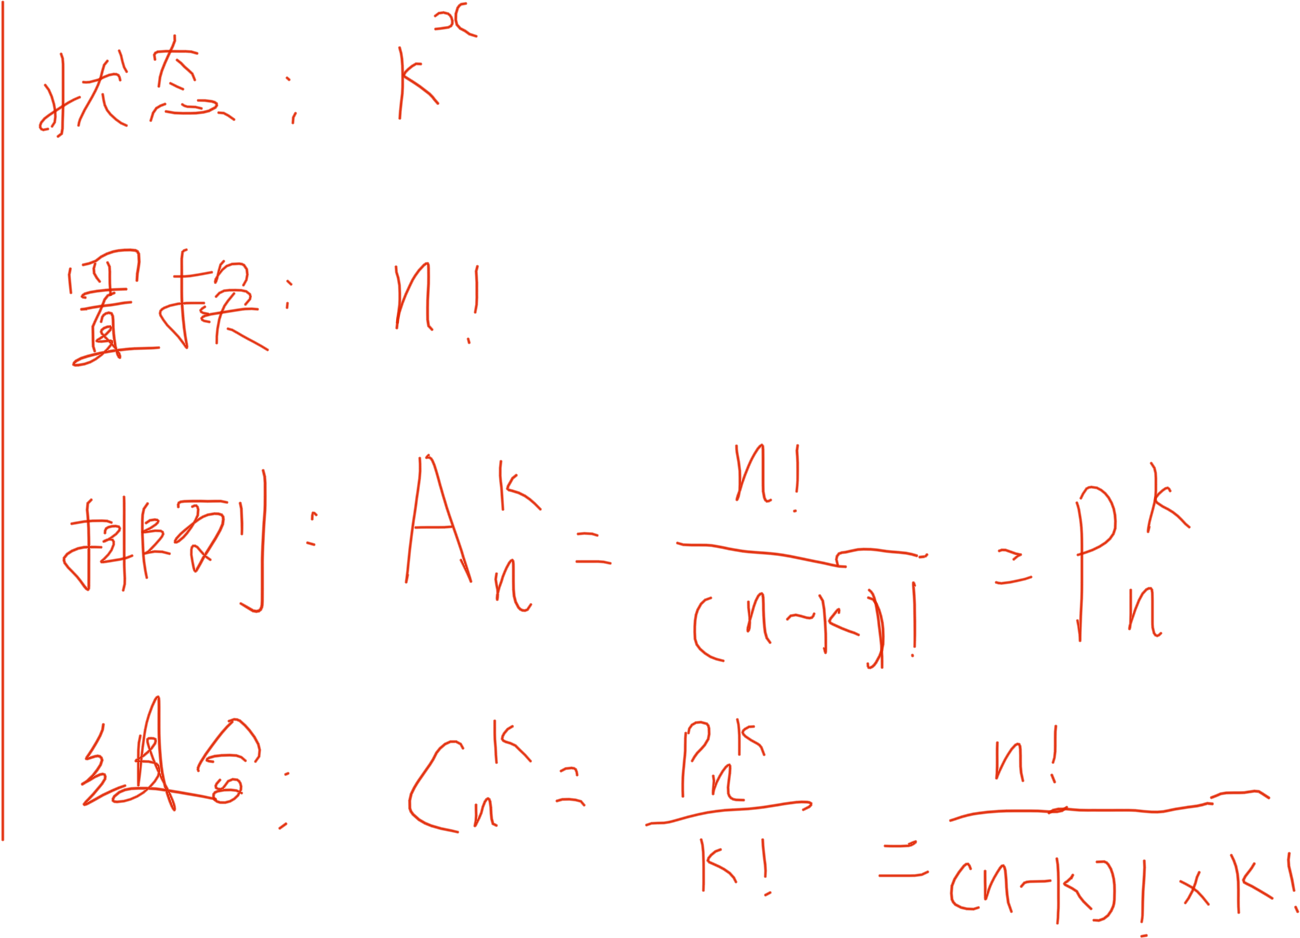 状态: k^x
置换: n!
排列: A_n^k = n!/(n-k)! = P_n^k
组合: C_n^k = P_n^k/k! = n!/((n-k)!×k!)